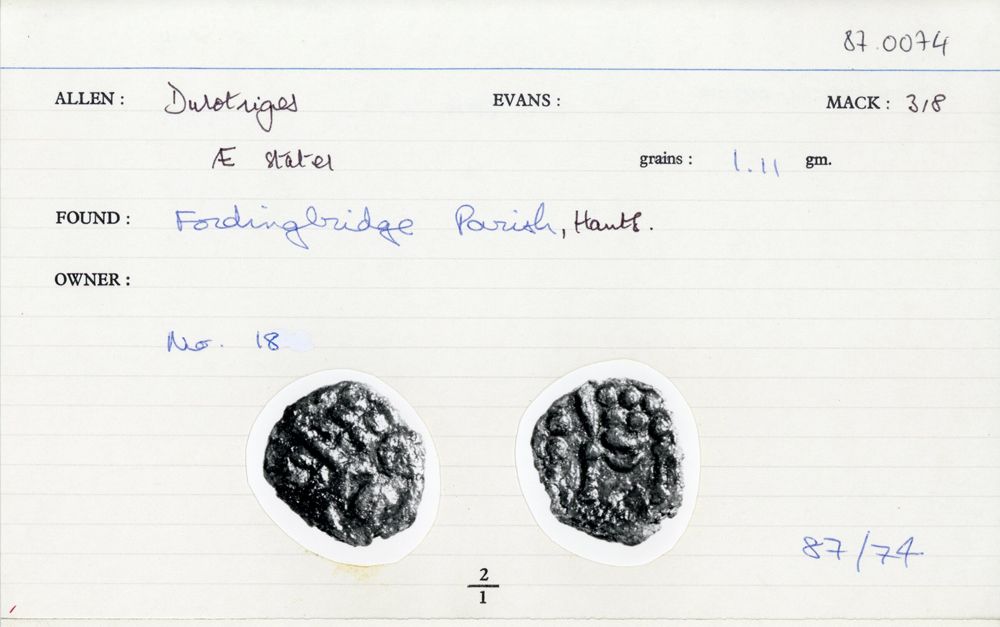 87.0074
ALLEN : Durotriges EVANS : MACK : 318
Æ stater grains : 1.11 gm.
FOUND : Fordingbridge Parish, Hants.
OWNER :
No. 18
87/74
2
1